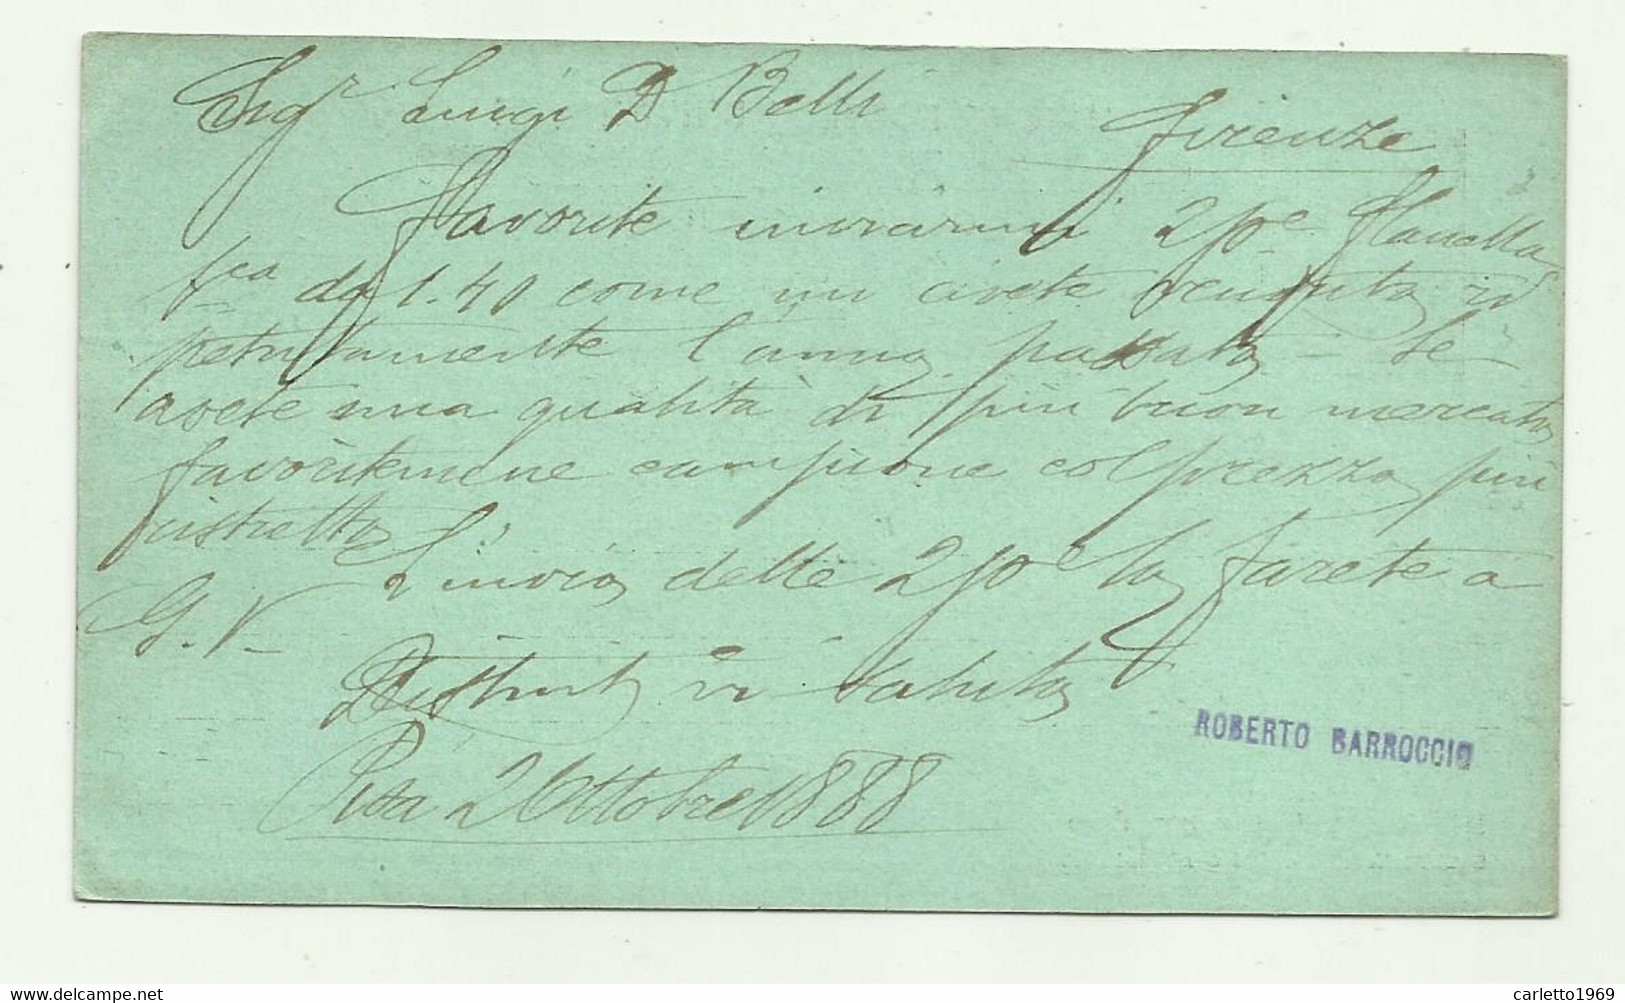 Sigr Luigi D Belli
Firenze
Favorite inviarmi 2 pe Flanella
da 1.40 come mi avete venduta ri
petutamente l'anno passato - Se
avete una qualità di più buon mercato
favoritemene campione col prezzo più
ristretto L'invio delle 2 pe lo farete a
G. V.
Distint vi saluto
Pisa 2 Ottobre 1888
ROBERTO BARROCCIO
carletto1969
delcampe.net